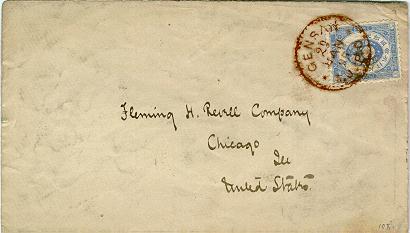 GENSAN
29
MAR
COREA
Fleming H. Revell Company
Chicago
Ill
United States.